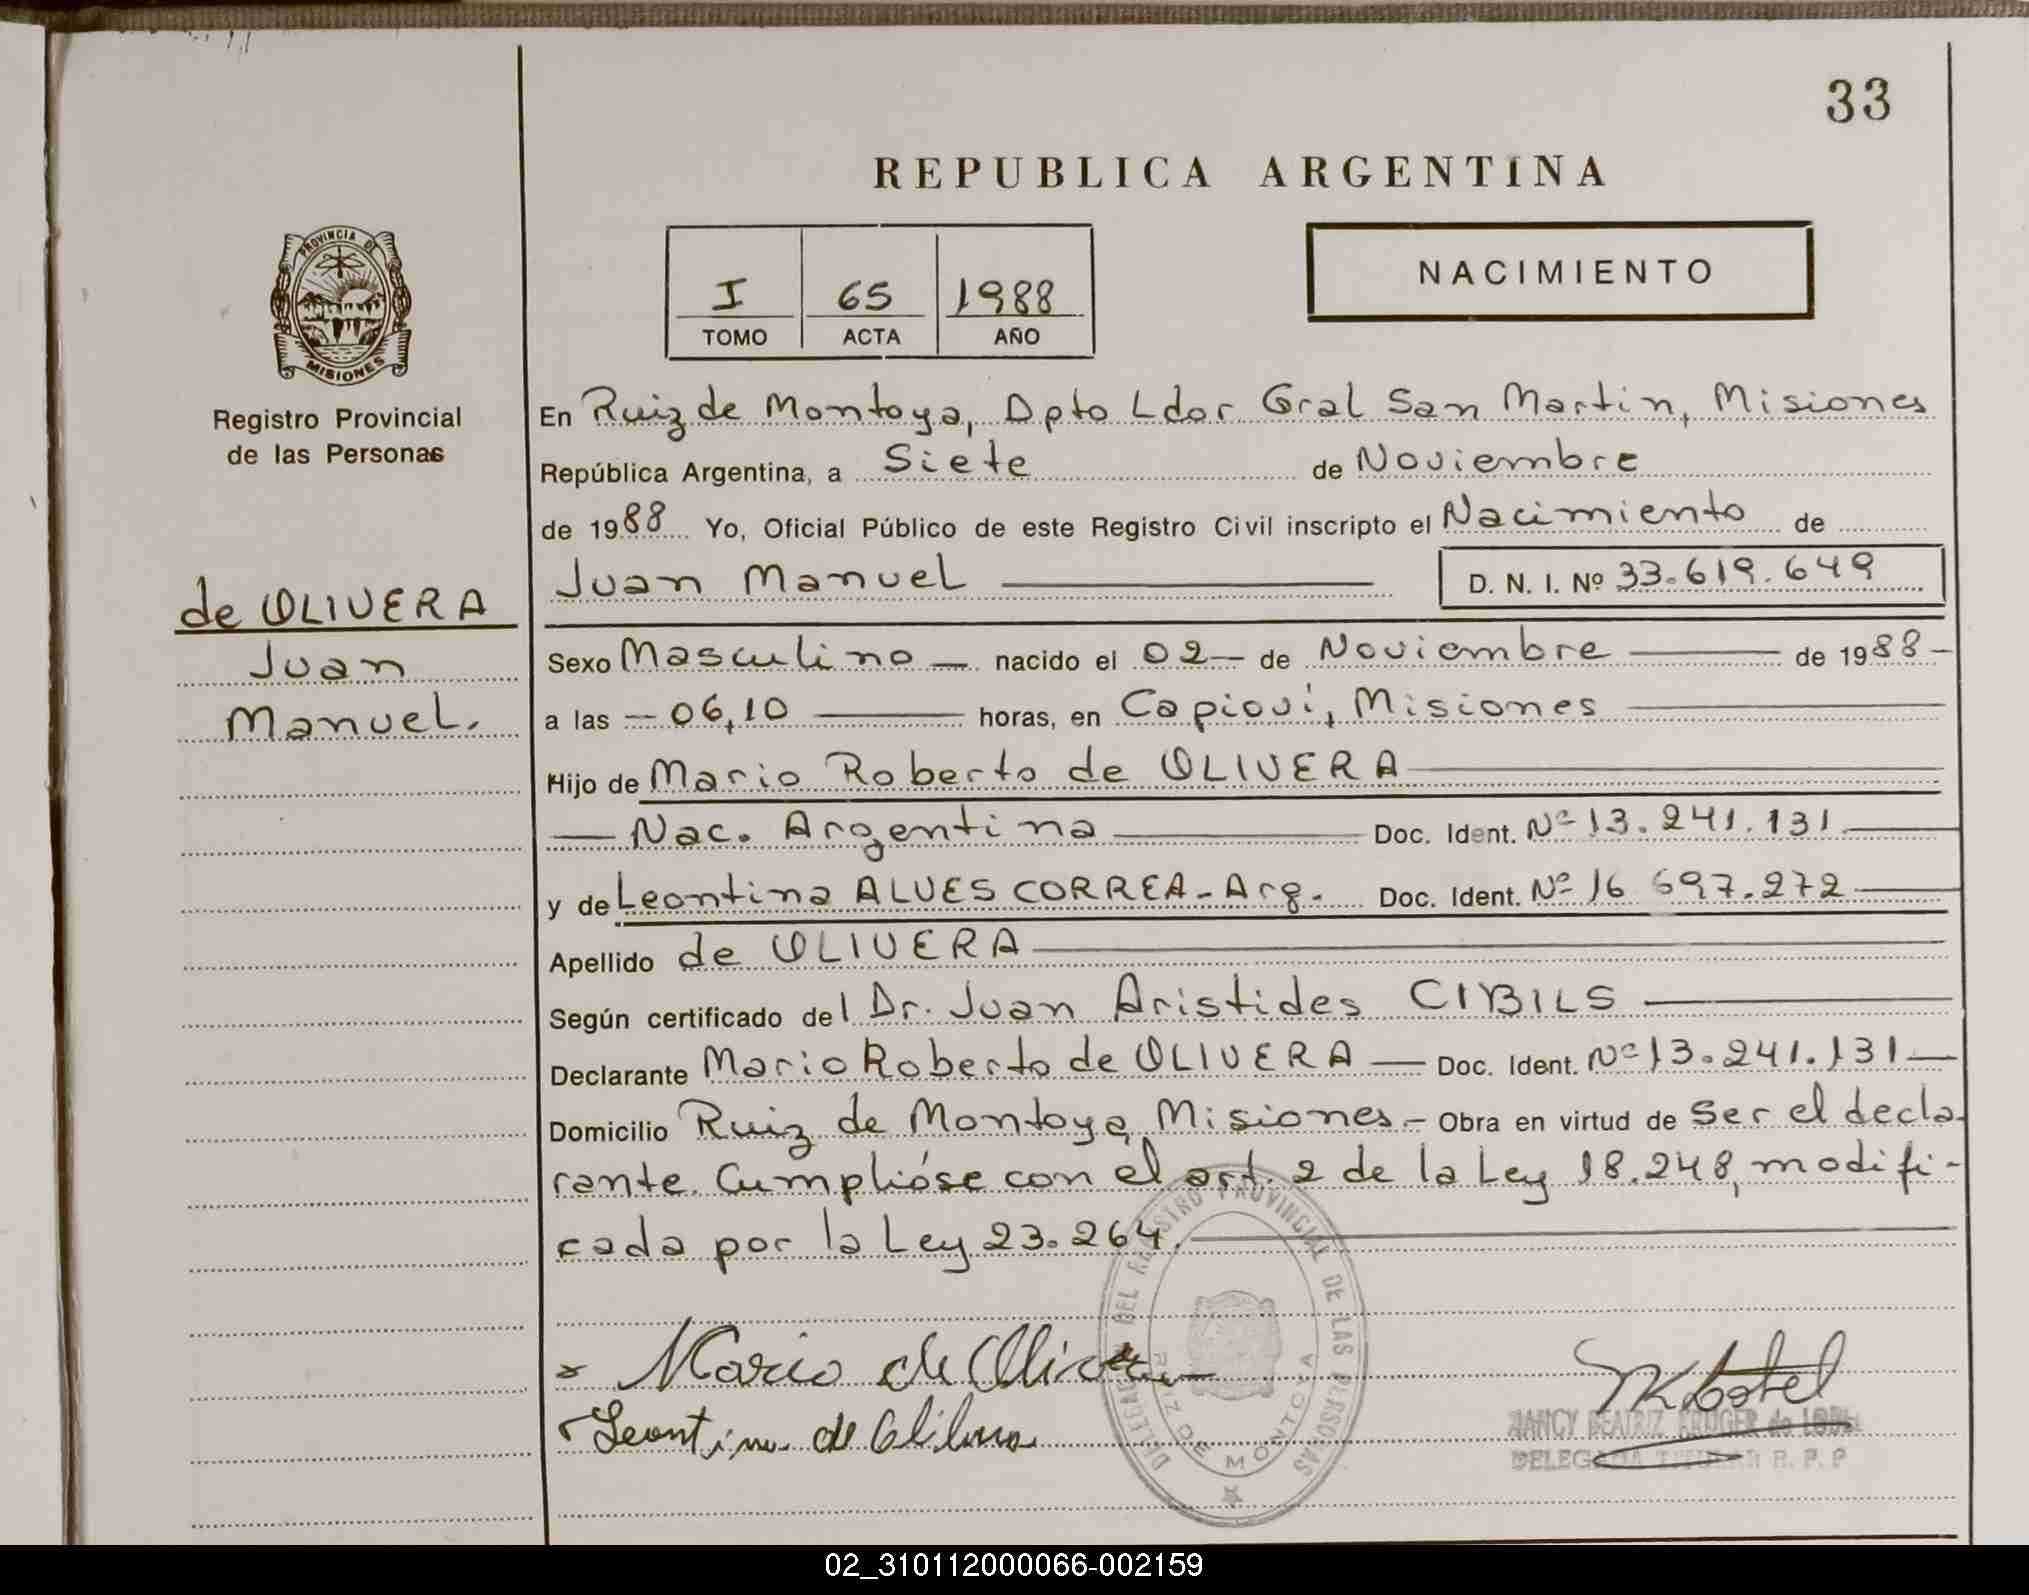 33
REPUBLICA ARGENTINA
PROVINCIA DE
MISIONES
Registro Provincial
de las Personas
I 65 1988
TOMO ACTA AÑO
NACIMIENTO
de OLIVERA
Juan
Manuel.
En Ruiz de Montoya, Dpto Ldor Gral San Martin, Misiones
República Argentina, a Siete de Noviembre
de 1988 Yo, Oficial Público de este Registro Civil inscripto el Nacimiento de
Juan Manuel D. N. I. Nº 33.619.649
Sexo Masculino nacido el 02 de Noviembre de 1988
a las 06,10 horas, en Capioví, Misiones
Hijo de Mario Roberto de OLIVERA
Nac. Argentina Doc. Ident. Nº 13.241.131
y de Leontina ALVES CORREA - Arg. Doc. Ident. Nº 16 697.272
Apellido de OLIVERA
Según certificado del Dr. Juan Aristides CIBILS
Declarante Mario Roberto de OLIVERA Doc. Ident. Nº 13.241.131
Domicilio Ruiz de Montoya, Misiones.- Obra en virtud de Ser el decla-
rante. Cumplióse con el art. 2 de la Ley 18.248, modifi-
cada por la Ley 23.264.
DELEGACION DEL REGISTRO PROVINCIAL DE LAS PERSONAS
RUIZ DE MONTOYA
Mario de Olivera
Leontina de Olivera
NANCY BEATRIZ KRUGER de
DELEGADA TITULAR R. P. P
02_310112000066-002159